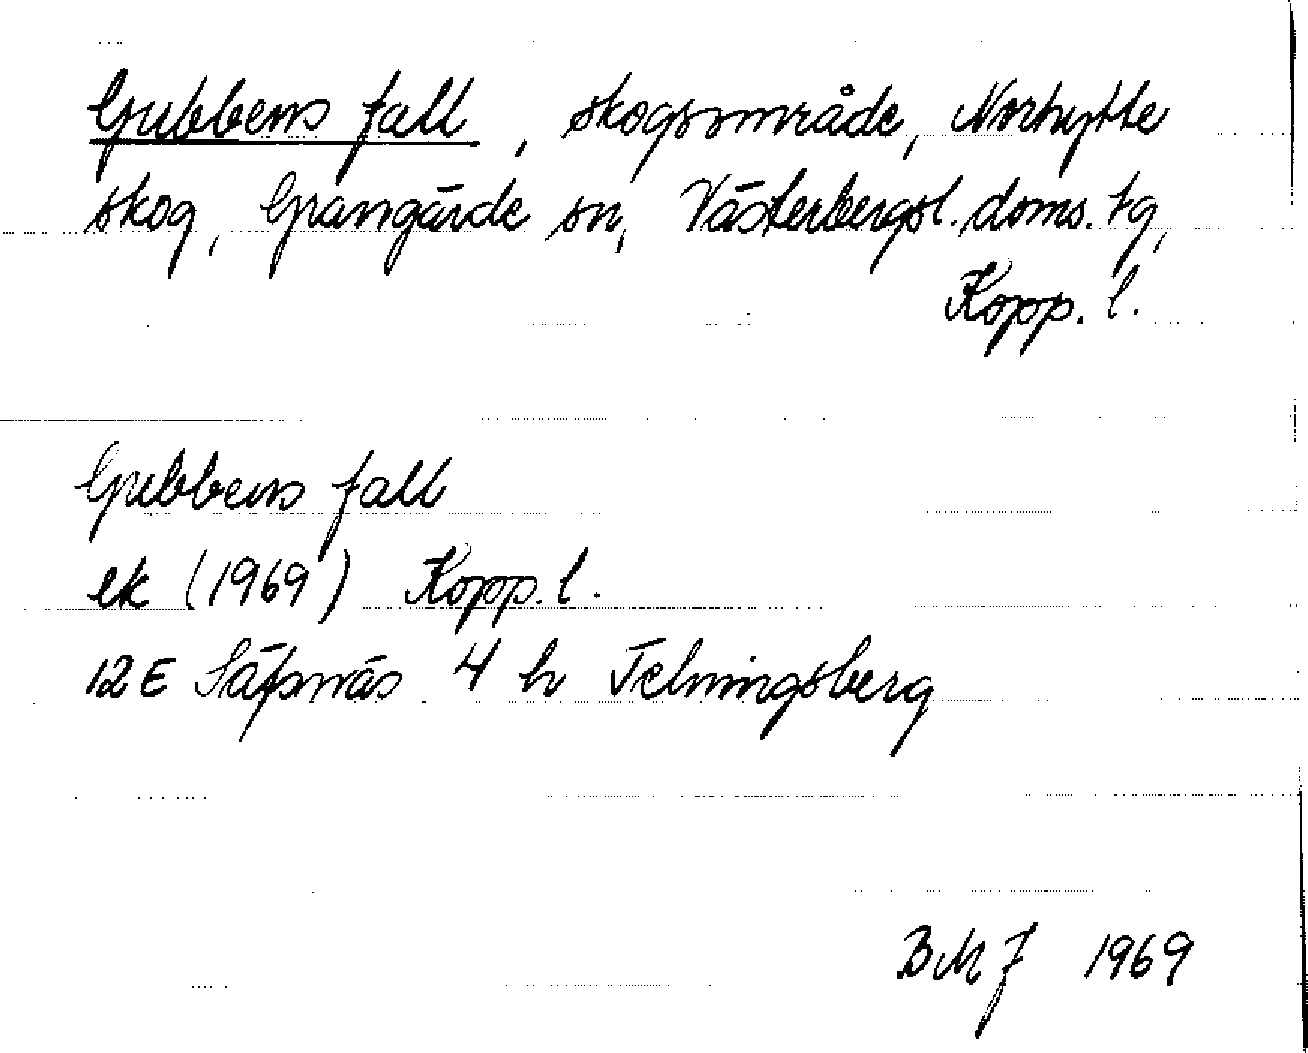 Gubbens fall, skogsområde, Norhytte
skog, Grangärde sn, Västerbergsl. doms. tg,
Kopp. l.
Gubbens fall
ek (1969) Kopp. l.
12 E Säfsnäs 4 h Telningsberg
BMJ 1969